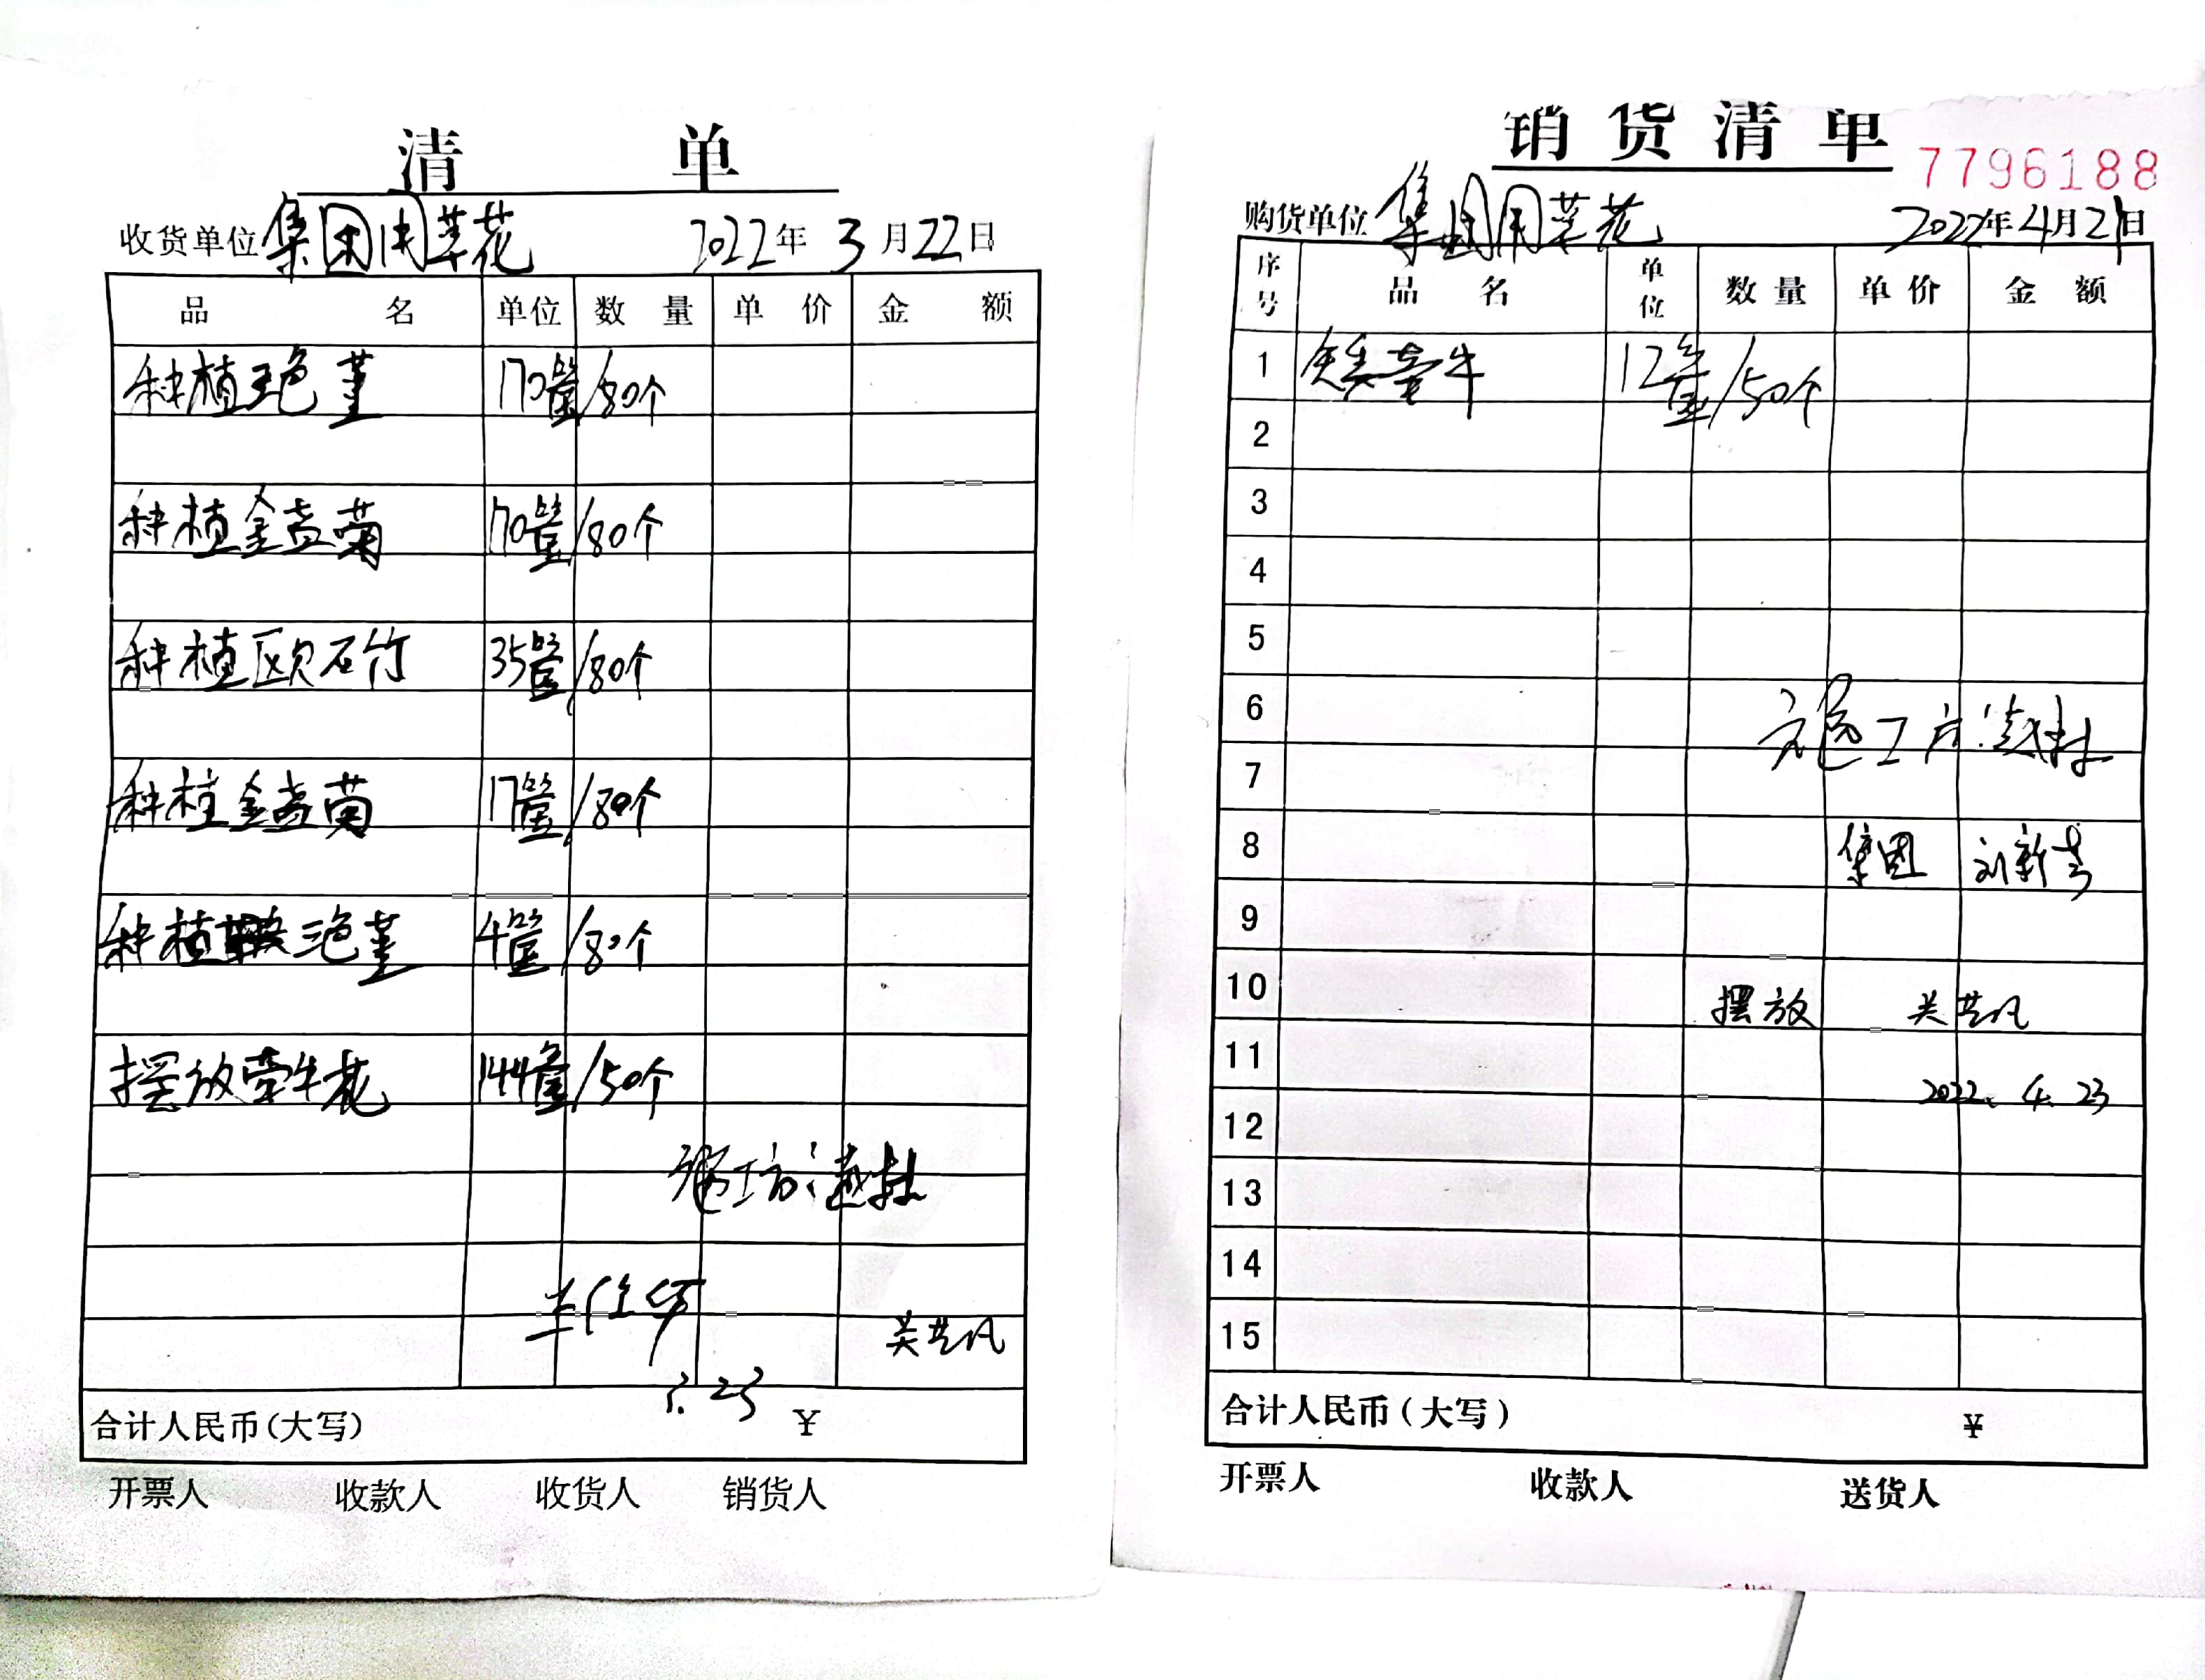 清 单
收货单位 集团用草花 2022年3月22日
品 名 单位 数 量 单 价 金 额
种植三色堇 170筐/80个
种植金盏菊 170筐/80个
种植欧石竹 35筐/80个
种植金盏菊 17筐/80个
种植 三色堇 4筐/80个
摆放牵牛花 144筐/50个
施工方:
3.23
吴艺凡
合计人民币(大写) ¥
开票人 收款人 收货人 销货人
销货清单
7796188
购货单位 集团用草花 2022年4月21日
序号 品 名 单位 数量 单价 金 额
1 矮牵牛 12筐/50个
2
3
4
5
6 施工方:
7
8 集团 刘新
9
10 摆放 吴艺凡
11 2022.4.23
12
13
14
15
合计人民币(大写) ¥
开票人 收款人 送货人